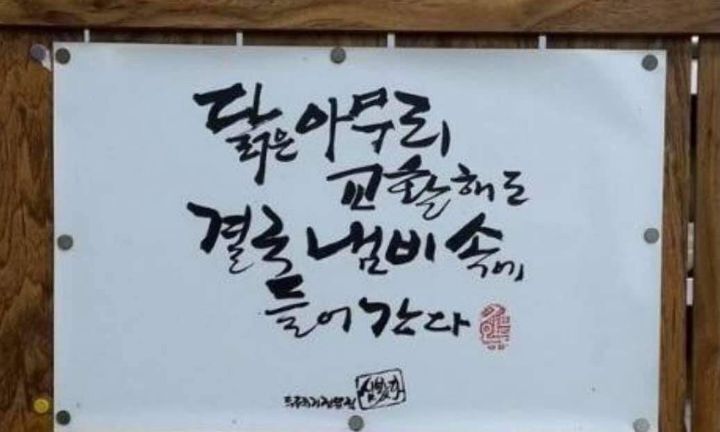 닭은 아무리
교활해도
결국 냄비 속에
들어 간다